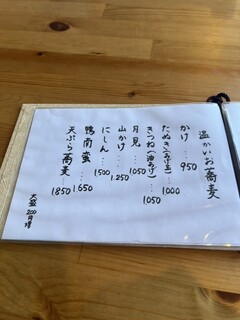 温かいお蕎麦
かけ…950
たぬき(あげ玉)…1000
きつね(油あげ)…1050
月見…1050
山かけ…1250
にしん…1500
鴨南蛮…1650
天ぷら蕎麦…1850
大盛200円増